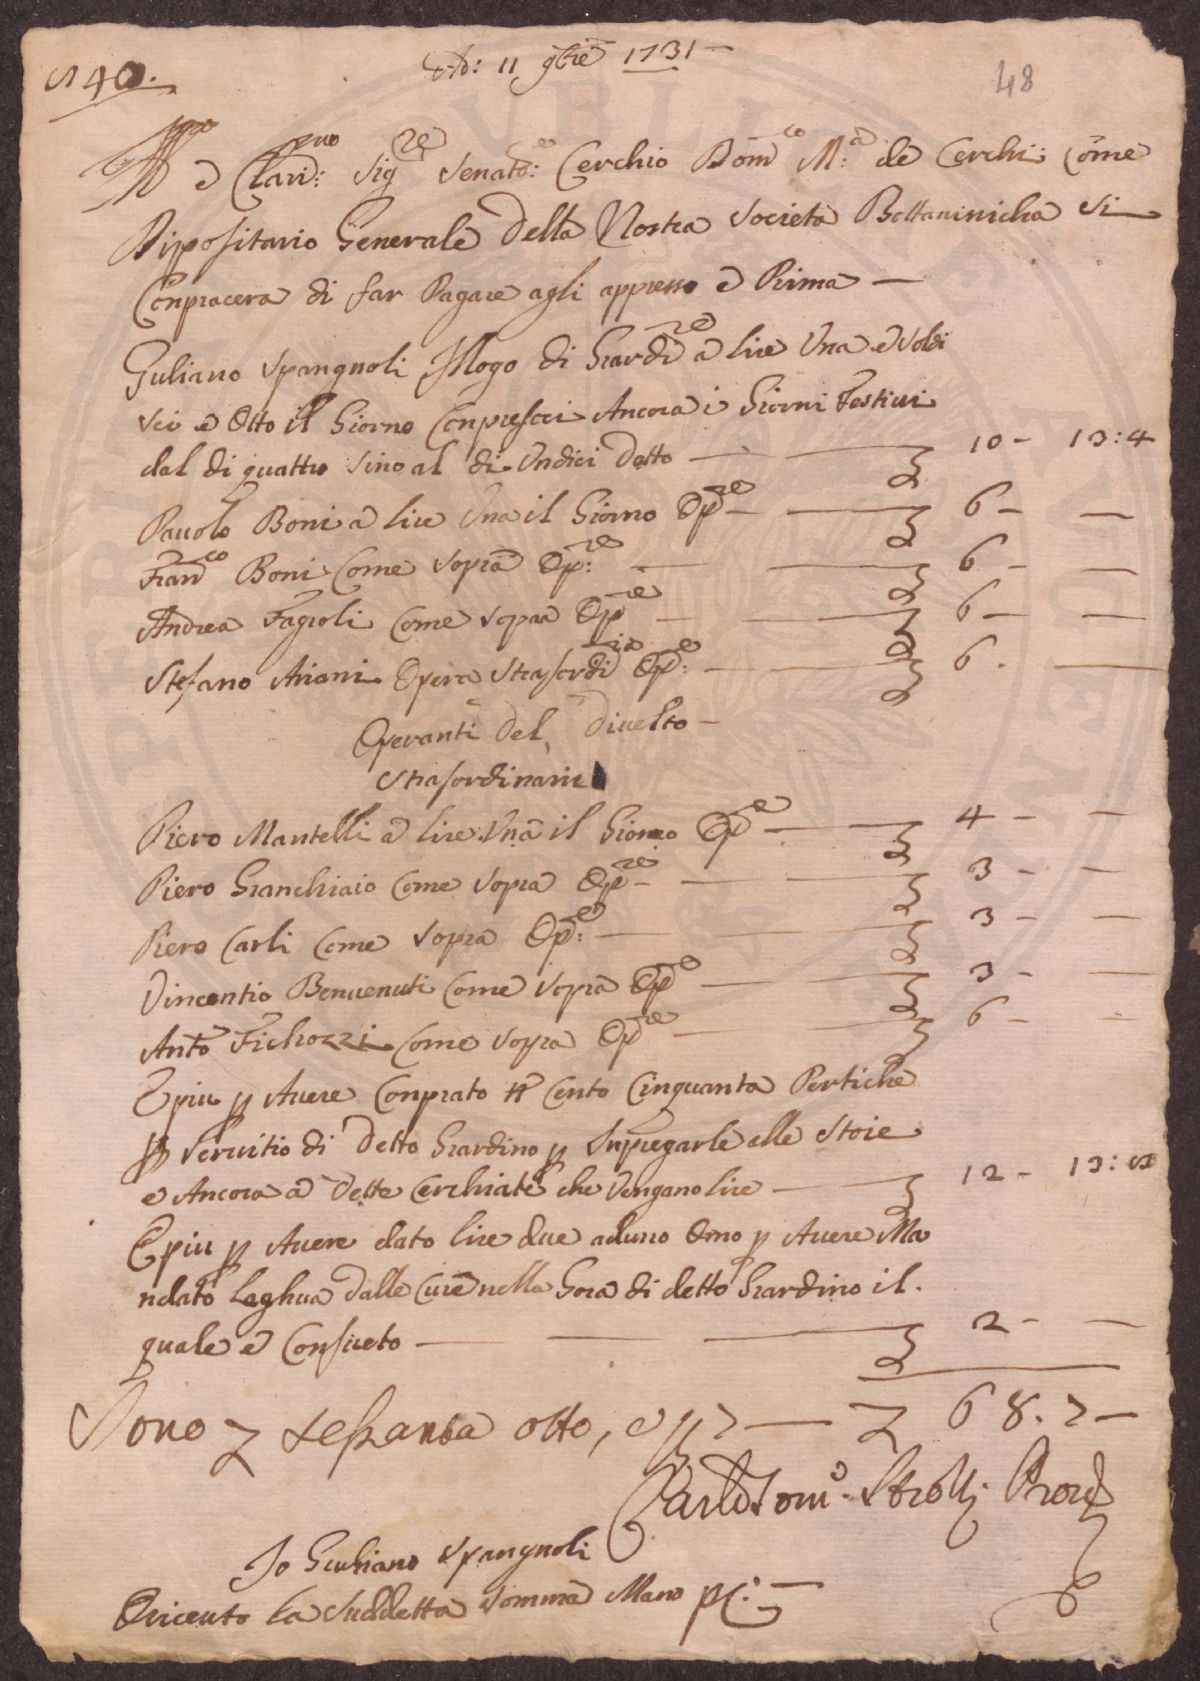 Ad: 11 9bre 1731
N 40.
48
Illmo e Clarmo: Sigre Senatore: Cerchio Domco M:a de Cerchi Come
Dipositario Generale della Nostra Societa Bottaninicha Si
Conpiacera di far Pagare agli appresso e Prima —
Guliano Spangnoli Mogo di Giardre a lire Una e Soldi
Sei e Otto il Giorno Conpresoci Ancora i Giorni Festivi
dal di quattro Sino al di Undici Detto — 10 – 13:4
Pavolo Boni a lire Una il Giorno Opre — 6 – —
Franco Boni Come Sopra Op:re — 6 – —
Andrea Fagioli Come Sopra Opre — 6 – —
Stefano Ariani Opera Strasordiria Op:e — 6 . —
Operanti Del Divelto –
Strasordinarii
Piero Mantelli a lire Una il Giorno Opre — 4 – —
Piero Granchiaio Come Sopra Opre — 3 – —
Piero Carli Come Sopra Op:e — 3 – —
Vincentio Benvenuti Come Sopra Ope — 3 – —
Anto Fichozzi Come Sopra Opre — 6 – —
E piu p Avere Conprato n Cento Cinquanta Pertiche
p Servitio di Detto Giardino p Inpiegarle alle Stoie
e Ancora a Dette Cerchiate che Vengano lire — 12 – 13:8
E piu p Avere dato lire due aduno Omo p Avere Ma
ndato Laghua Dalle Cure nella Gora di detto Giardino il.
quale e Consueto — 2 – —
Sono sessanta otto, e 7 — 68.7 —
Carlo Tomo. Strozzi Prov
Io Giuliano Spangnoli
Oricevto La Suddetta Somma Mano pa: